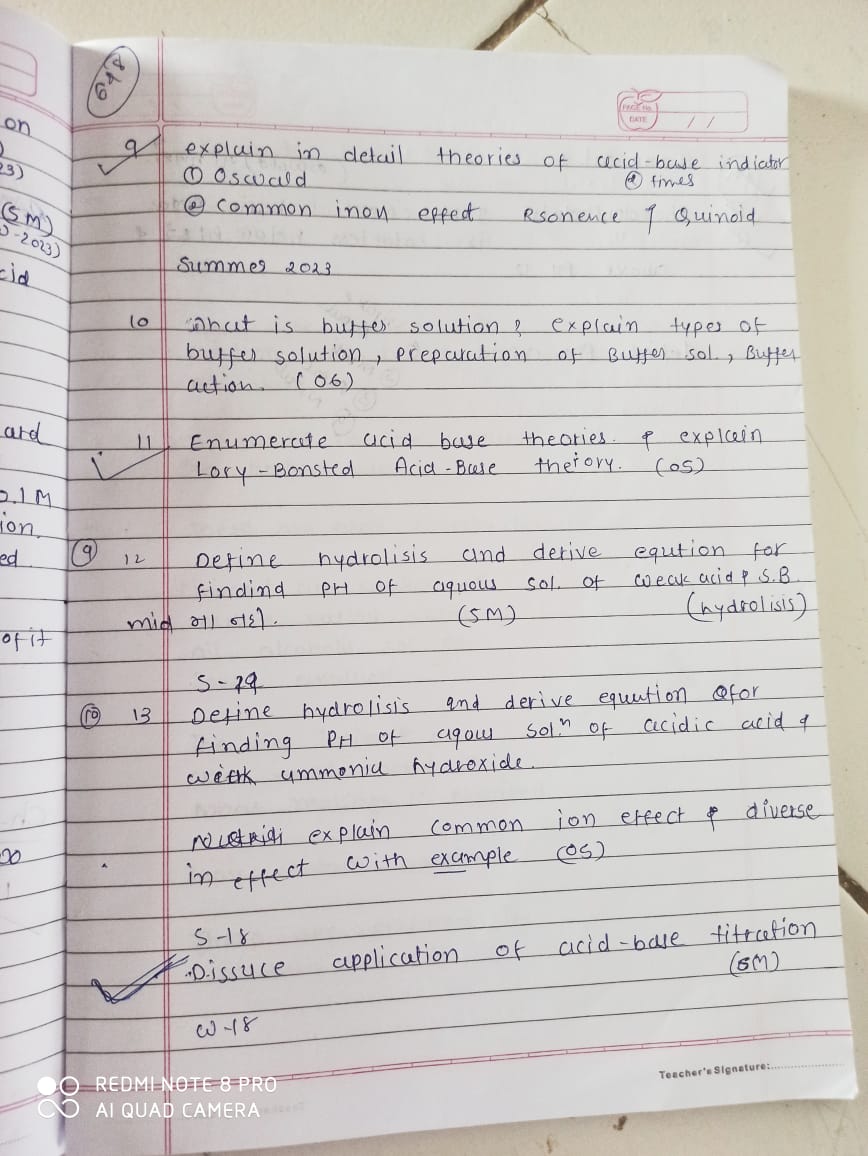 698
PAGE No.
DATE / /
9 explain in detail theories of acid-base indiator
① Oswald ② times
② common inon effect Rsonence & Quinoid
Summer 2023
10 What is buffer solution? explain types of
buffer solution, preparation of Buffer sol., Buffer
action. (06)
11 Enumerate acid base theories. & explain
Lory-Bonsted Acid-Base therory. (05)
⑨ 12 Define hydrolisis and derive eqution for
findind PH of aquous sol. of weak acid & S.B.
mid (5M) (hydrolisis)
S-
⑩ 13 Define hydrolisis and derive equution for
finding PH of aqous sol.n of acidic acid &
weak ummonia hydroxide.
explain common ion effect & diverse
in effect with example (05)
S-18
Dissuce application of acid-base titration
(5M)
W-18
Teacher's Signature:
on
23)
(5M)
-2023)
cid
ard
0.1M
ion.
ed
of it
REDMI NOTE 8 PRO
AI QUAD CAMERA